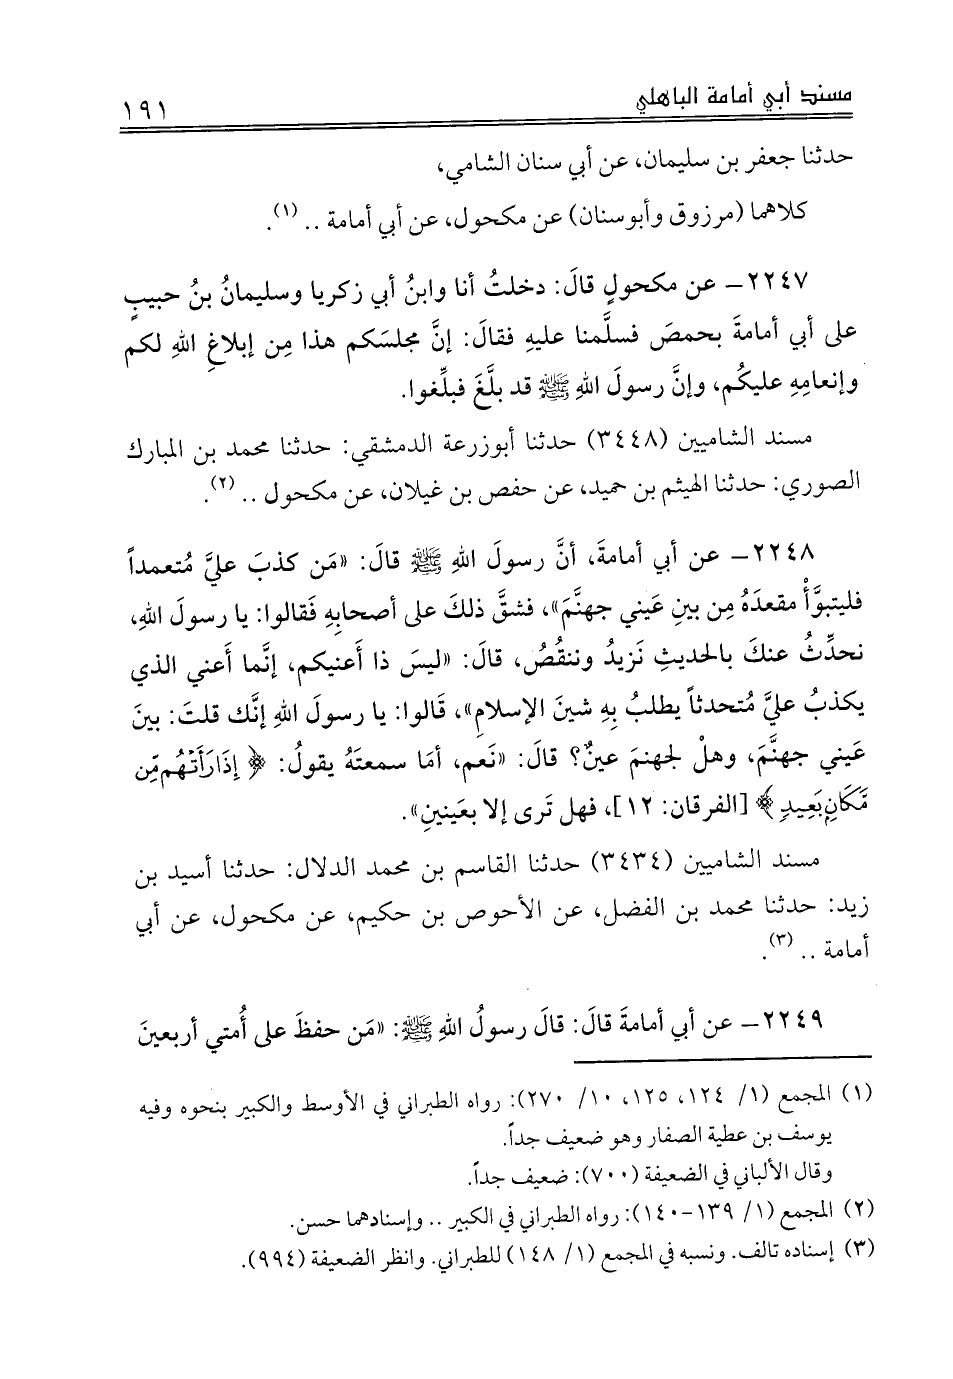 مسند أبي أمامة الباهلي
١٩١
حدثنا جعفر بن سليمان، عن أبي سنان الشامي،
كلاهما (مرزوق وأبوسنان) عن مكحول، عن أبي أمامة .. (١).
٢٢٤٧ – عن مكحولٍ قالَ: دخلتُ أنا وابنُ أبي زكريا وسليمانُ بنُ حبيبٍ
على أبي أمامةَ بحمصَ فسلَّمنا عليهِ فقالَ: إنَّ مجلسَكم هذا مِن إبلاغِ اللهِ لكم
وإنعامِهِ عليكُم، وإنَّ رسولَ اللهِ ﷺ قد بلَّغَ فبلِّغوا.
مسند الشاميين (٣٤٤٨) حدثنا أبوزرعة الدمشقي: حدثنا محمد بن المبارك
الصوري: حدثنا الهيثم بن حميد، عن حفص بن غيلان، عن مكحول .. (٢).
٢٢٤٨ – عن أبي أمامةَ، أنَّ رسولَ اللهِ ﷺ قالَ: «مَن كذبَ عليَّ مُتعمداً
فليتبوَّأْ مقعدَهُ مِن بينِ عَيني جهنَّمَ»، فشقَّ ذلكَ على أصحابِهِ فَقالوا: يا رسولَ اللهِ،
نحدِّثُ عنكَ بالحديثِ نَزيدُ وننقُصُ، قالَ: «ليسَ ذا أَعنيكم، إنَّما أَعني الذي
يكذبُ عليَّ مُتحدثاً يطلبُ بِهِ شينَ الإسلامِ»، قَالوا: يا رسولَ اللهِ إنَّك قلتَ: بينَ
عَيني جهنَّمَ، وهلْ لجهنمَ عينٌ؟ قالَ: «نَعم، أمَا سمعتَهُ يقولُ: ﴿إِذَا رَأَتْهُم مِّن
مَّكَانٍ بَعِيدٍ﴾ [الفرقان: ١٢]، فهل تَرى إلا بعَينينِ».
مسند الشاميين (٣٤٣٤) حدثنا القاسم بن محمد الدلال: حدثنا أسيد بن
زيد: حدثنا محمد بن الفضل، عن الأحوص بن حكيم، عن مكحول، عن أبي
أمامة .. (٣).
٢٢٤٩ – عن أبي أمامةَ قالَ: قالَ رسولُ اللهِ ﷺ: «مَن حفظَ على أُمتي أربعينَ
(١) المجمع (١/ ١٢٤، ١٢٥، ١٠/ ٢٧٠): رواه الطبراني في الأوسط والكبير بنحوه وفيه
يوسف بن عطية الصفار وهو ضعيف جداً.
وقال الألباني في الضعيفة (٧٠٠): ضعيف جداً.
(٢) المجمع (١/ ١٣٩-١٤٠): رواه الطبراني في الكبير .. وإسنادهما حسن.
(٣) إسناده تالف. ونسبه في المجمع (١/ ١٤٨) للطبراني. وانظر الضعيفة (٩٩٤).